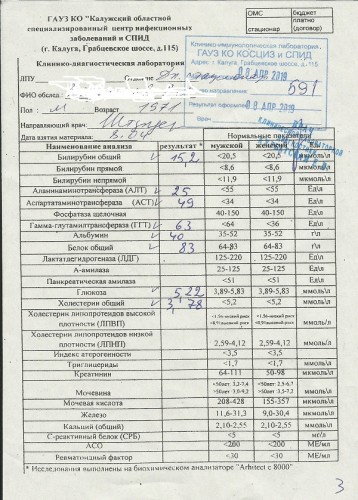 ГАУЗ КО "Калужский областной
специализированный центр инфекционных
заболеваний и СПИД
(г. Калуга, Грабцевское шоссе, д.115)
Клинико-диагностическая лаборатория
ОМС бюджет
платно
стационар (договор)
Клинико-иммунологическая лаборатория
ГАУЗ КО КОСЦИЗ и СПИД
Адрес: г. Калуга, Грабцевское шоссе, д.115
АПР 2019
591
Результат оформлен 08 АПР 2019
ЛПУ
ФИО
Пол: М 1971
Направляющий врач:
Дата взятия материала: 8.04
Нормальные показатели
Наименование анализа результат * мужской женский
Билирубин общий 15,2 <20,5 <20,5 мкмоль\л
Билирубин прямой <8,6 <8,6 мкмоль\л
Билирубин непрямой <11,9 <11,9 мкмоль\л
Аланинаминотрансфераза (АЛТ) 25 <55 <55 Ед\л
Аспартатаминотрансфераза (АСТ) 49 <34 <34 Ед\л
Фосфатаза щелочная 40-150 40-150 Ед\л
Гамма-глутамилтрансфераза (ГГТ) 63 <64 <36 Ед\л
Альбумин 40 35-52 35-52 г\л
Белок общий 83 64-83 64-83 г\л
Лактатдегидрогеназа (ЛДГ) 125-220 125-220 Ед\л
А-амилаза 25-125 25-125 Ед\л
Панкреатическая амилаза <51 <51 Ед\л
Глюкоза 5,22 3,89-5,83 3,89-5,83 ммоль\л
Холестерин общий 3,78 <5,2 <5,2 ммоль\л
Холестерин липопротеидов высокой
плотности (ЛПВП) ммоль\л
Холестерин липопротеидов низкой
плотности (ЛПНП) 2,59-4,12 2,59-4,12 ммоль\л
Индекс атерогенности <3,5 <3,5
Триглицериды <1,7 <1,7 ммоль\л
Креатинин 64-111 50-98 мкмоль\л
Мочевина ммоль\л
Мочевая кислота 208-428 155-357 мкмоль\л
Железо 11,6-31,3 9,0-30,4 мкмоль\л
Кальций (общий) 2,10-2,55 2,10-2,55 ммоль\л
С-реактивный белок (СРБ) <5 <5 МЕ/л
АСО <200 <200 МЕ/мл
Ревматоидный фактор <30 <30 МЕ/мл
* Исследования выполнены на биохимическом анализаторе "Arhitect c 8000"
3